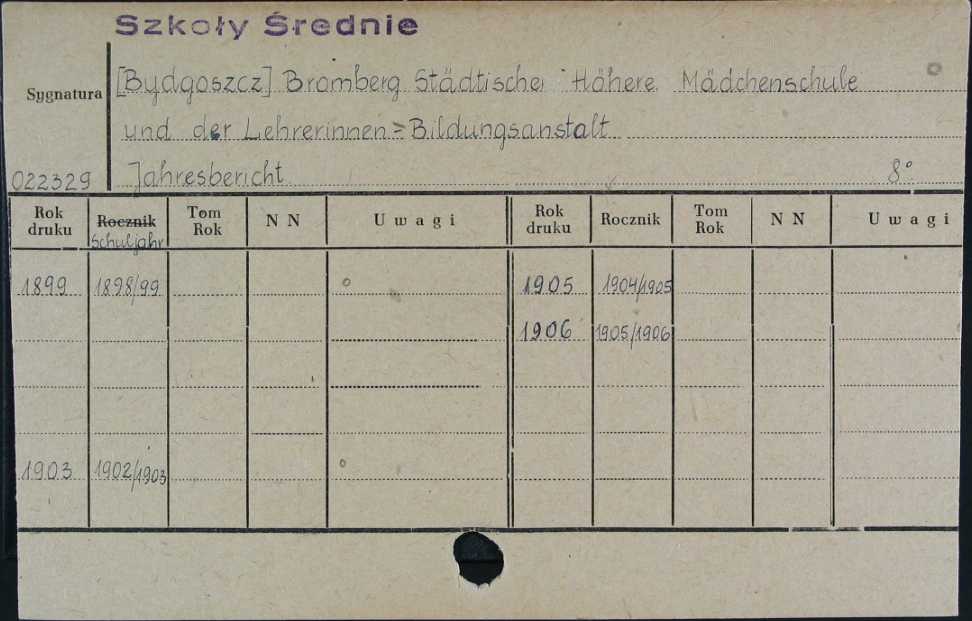 Szkoły Średnie
[Bydgoszcz] Bromberg Städtische Höhere Mädchenschule
Sygnatura
und der Lehrerinnen=Bildungsanstalt
022329 Jahresbericht 8°
Rok druku Rocznik Schuljahr Tom Rok N N Uwagi Rok druku Rocznik Tom Rok N N Uwagi
1899 1898/99 1905 1904/1905
1906 1905/1906
1903 1902/1903